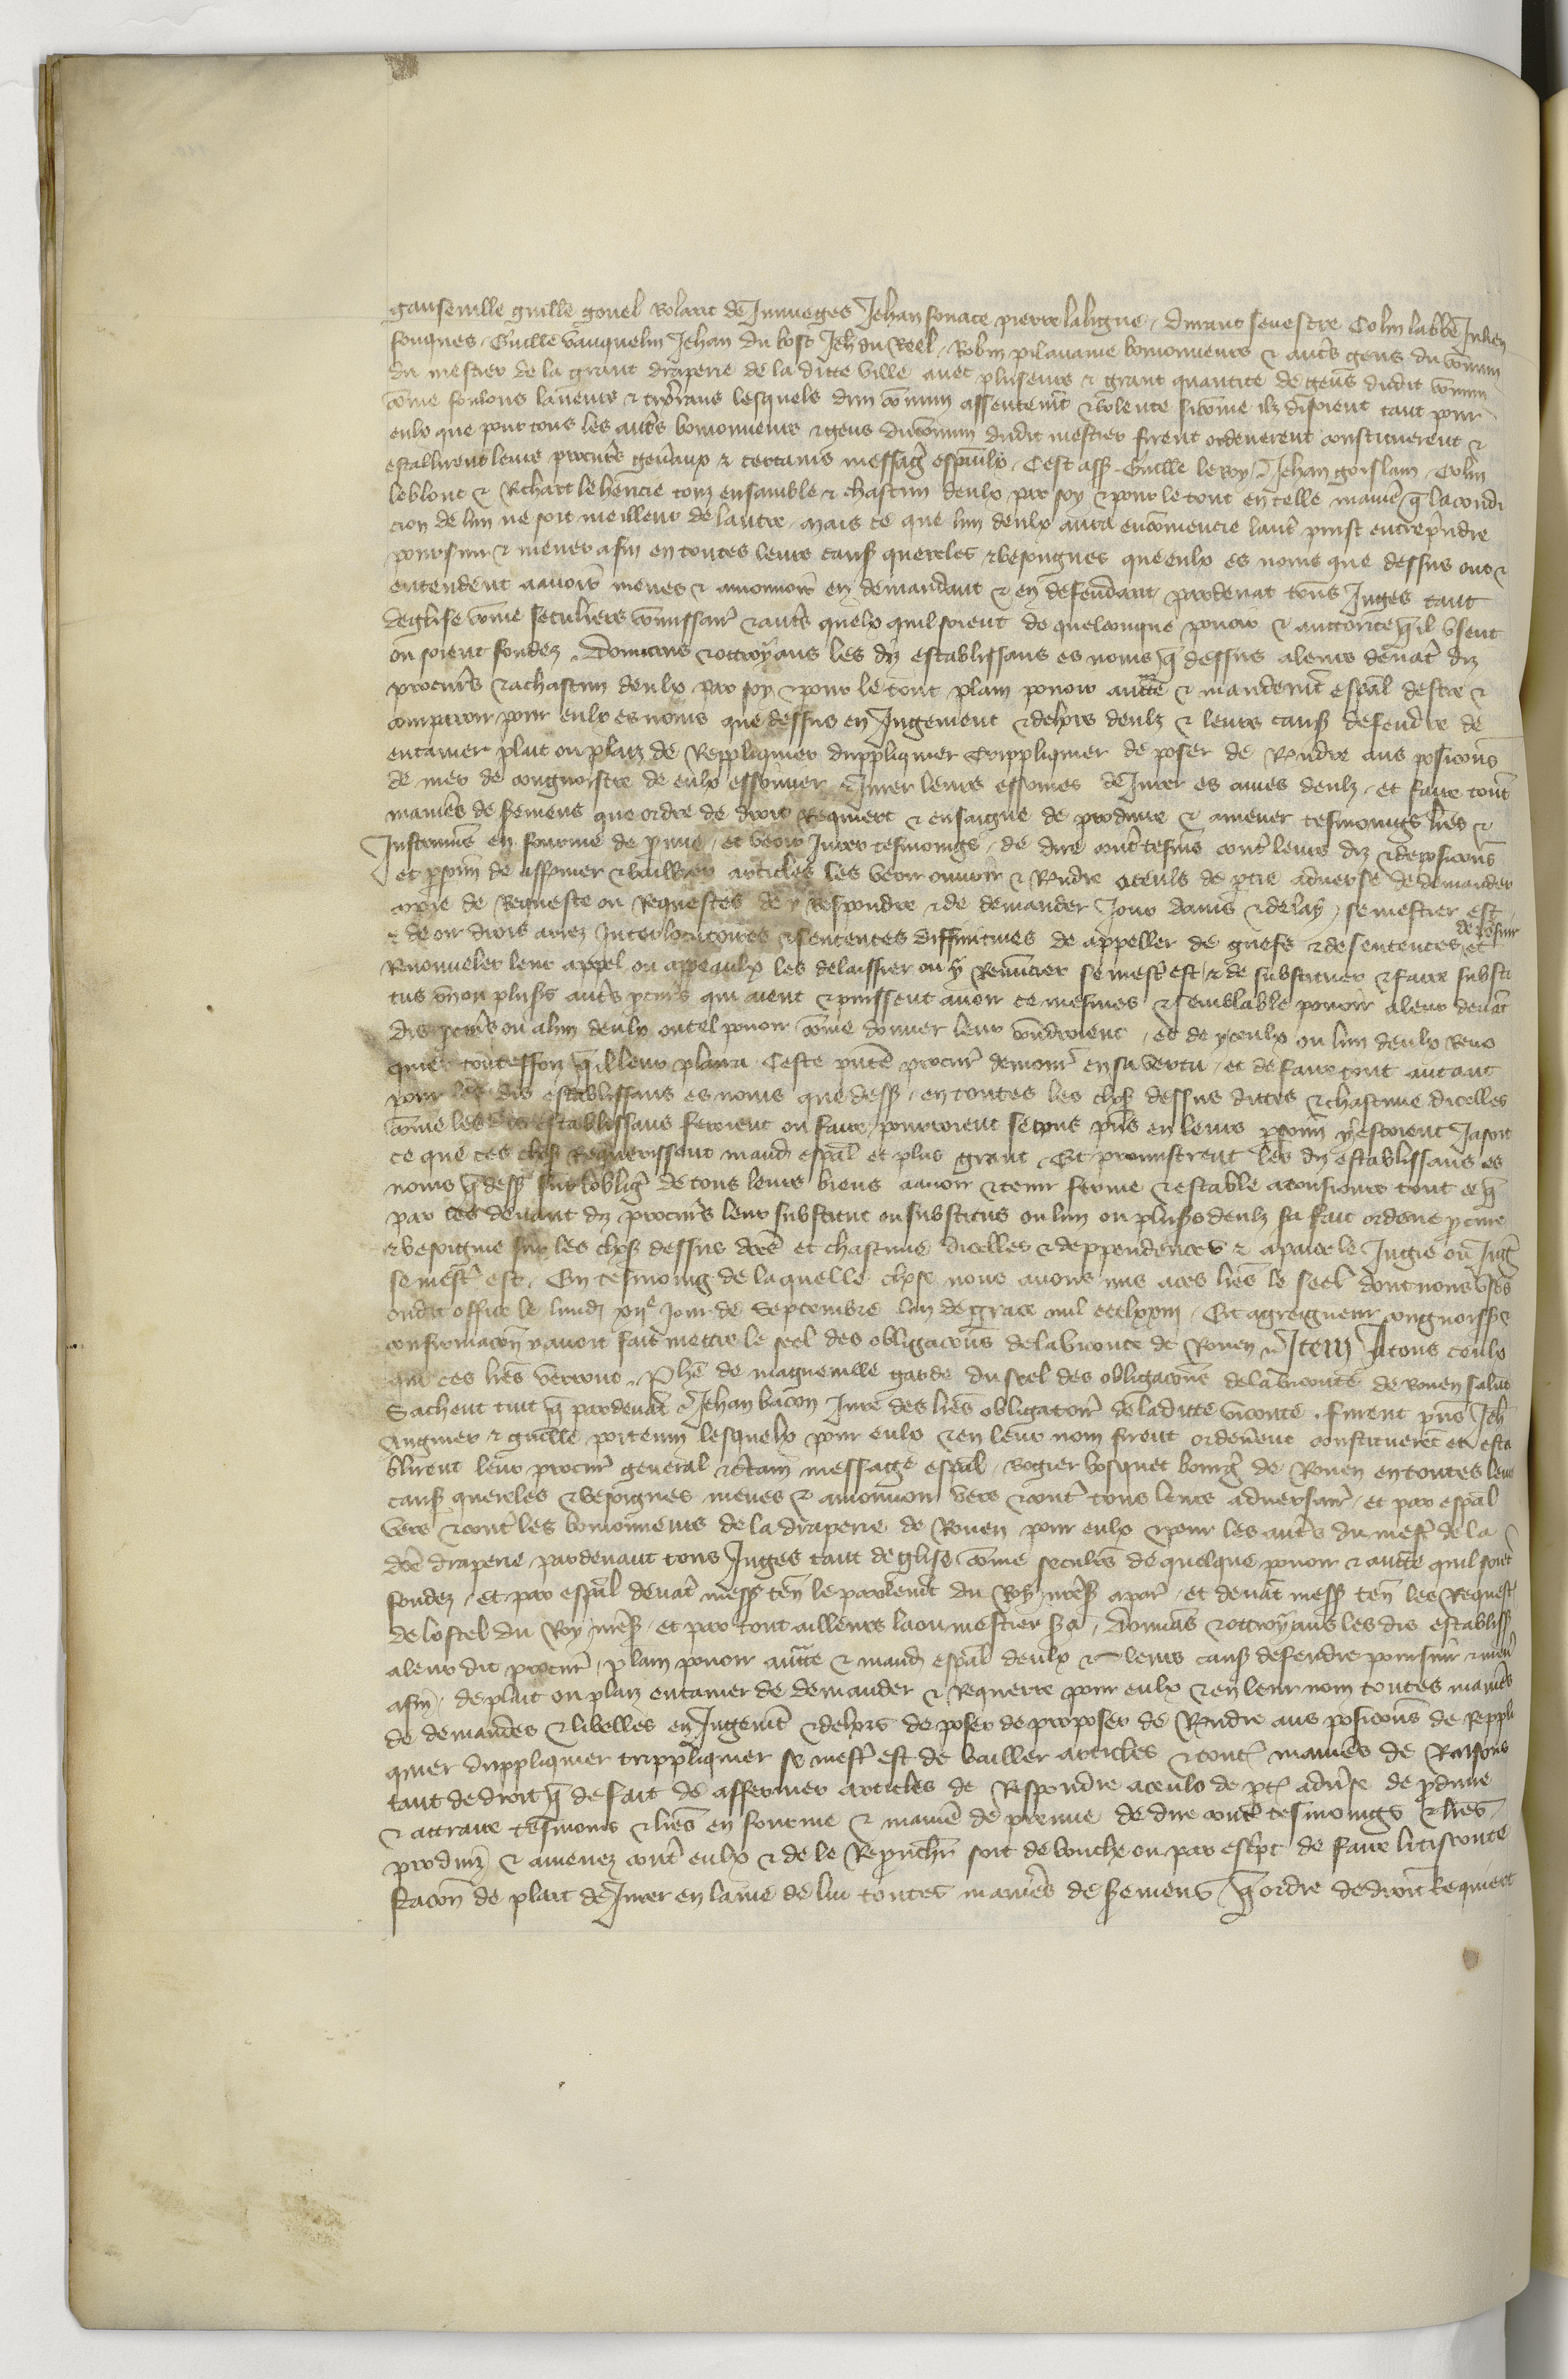 gauseville guille gouel Rolant de Jumieges Jehan fouace pierre laligue Durant senestre Colin labbe Julien
fouques Guille vauquelin Jehan du bosc Jeh du Reel Robin pilavaine boujonneurs & autrs gens du comun
du mestier de la grant draperie de la ditte ville avec pluseurs & grant quantite de gens dudit comun
come foulons laneurs & lesquels dun comun assentemt & volente sicome ilz disoient tant pour
eulx que pour tous les autrs boujonneurs & gens du comun dudit mestier firent ordenerent constituerent &
establirent leurs procurs generaux & certains messagrs espaulx Cest ass Guille le roy Jehan goislain Colin
leblont & Richart le hencie touz ensamble & chascun deulx par soy & pour le tout en telle maniere q la condi
cion de lun ne soit meilleur de lautre mais ce que lun deulx aura encomencie lautr puist entreprndre
poursuir & mener afin en toutes leurs causs quereles & besongnes que eulx es noms que dessus ont &
entendent a avoir meues & amouvoir en demandant & en defendant pardevat tous Juges tant
deglise come seculiers comissair & autrs quelx quil soient de quelconque pouoir & auctorite qil usent
ou soient fondez Donnans & ottroyans les diz establissans es noms q dessus a leurs devat diz
procurs & a chascun deulx par soy & pour le tout plain pouoir auctte & mandemt espal destre &
comparoir pour eulx es noms que dessus en Jugement & dehors deulz & leurs causs defendre de
entamer plait ou plaiz de Reppliquer duppliquer Trippliquer de poser de Rondre aus posicions
de nier de congnoistre de eulx essonnier & Jurer leurs essoines de Jurer es ames deulz et faire tout
manrs de sermens que ordre de droit Requiert & ensaigne de produire & amener tesmoings lres &
Instrumes en fourme de pruve et veoir Jurer tesmoings de dire contr tesms contr leurs diz & deposicions
et psoun de affermer & baillier articles les veoir ouvrir & Rondre a ceuls de prie adverse de demander
copie de Requeste ou Requestes de y Respondre & de demander Jour davis & delay se mestier est
& de oir drois arrez Interlocutoires & sentences diffinitives de appeller de griefs & de sentences et de poursuir
Renouveler leur appel ou appeaulx les delaissier ou y Renuncier se mestr est & de substituer & faire substi
tus un ou pluss autrs pcurs qui aient & puissent avoir ce mesmes & semblable pouoir a leur devat
dis pcurs ou a lun deulx ou tel pouoir come donner leur voudroient et de yceulx ou lun deulx Revo
quier touteffoiz qil leur plaira Ceste pnte procur demour en sa vertu et de faire tout autant
pour les dis establissans es noms que dess en toutes les choss dessus dittes & chascune dicelles
come les dis establissans feroient ou faire pourroient se tous pns en leurs psoun y estoient Jasoit
ce que ces choss Requerissent mand espal et plus grant Et promistrent les diz establissans es
noms q dess sur loblig de tous leurs biens a avoir & tenir ferme & estable a tousiours tout ce q
par les devant diz procurs leur substitut ou substitus ou lun ou pluss deulz sa fait ordene pcure
& besoigne sur les choss dessus dites et chascune dicelles & deppendences & a paier le Jugie ou Jug
se mestr est En tesmoing de laquelle chose nous avons mis a ces lres le seel dont nous usos
oudit office le lundi jour de septembre lan de grace mil ccclxxiii Et a greigneur congnoiss &
confirmacion y avons fait mettre le seel des obligacions de la viconte de Rouen Item A tous ceuls
qui ces lres verront Phe de magneville garde du seel des obligacions de la viconte de Rouen salut
Sachent tuit q pardevat Jehan bacon Jure des lres obligatoir de la ditte viconte furent pns Jeh
Anguier & guille porteun lesquelx pour eulx & en leur nom firent ordenerent constituerent et esta
blirent leur procur general & ctain message espal Rogier bosquet bourg de Rouen en toutes leurs
causs quereles & besoignes meues & amouvoir vers & contr tous leurs adversair et par espal
vers & contr les boujonneurs de la draperie de Rouen pour eulx & pour les autrs du mestr de la
dte draperie pardevant tous Juges tant deglise come seculrs de quelque pouoir & auctte quil soiet
fondez et par espal devat mess ten le parlemt du Roy nres a par et devat mess ten les Request
de lostel du Roy nres et par tout ailleurs la ou mestier sa Donnas & ottroyans les dis establiss
a leur dit procur plain pouoir auctte & mand espal deulx & leurs causs defendre poursuir & men
afin de plait ou plaiz entamer de demander & Requerre pour eulx & en leur nom toutes manrs
de demandes & libelles en Jugemt & dehors de poser de proposer de Rondre aus posicions de Reppli
quier duppliquier trippliquier se mestr est de bailler articles & tout manrs de Raisons
tant de droit q de fait de affermer articles de Respondre a ceulx de ptie advrse de pduire
& attraire tesmoins & lres en fourme & manre de preuve de dire contr tesmoings & lres
produiz & amenez contr eulx & de le Reprouchr soit de bouche ou par escpt de faire litisconte
stacon de plait de Jurer en lame de lui toutes manrs de sermens q ordre de droit Requiert